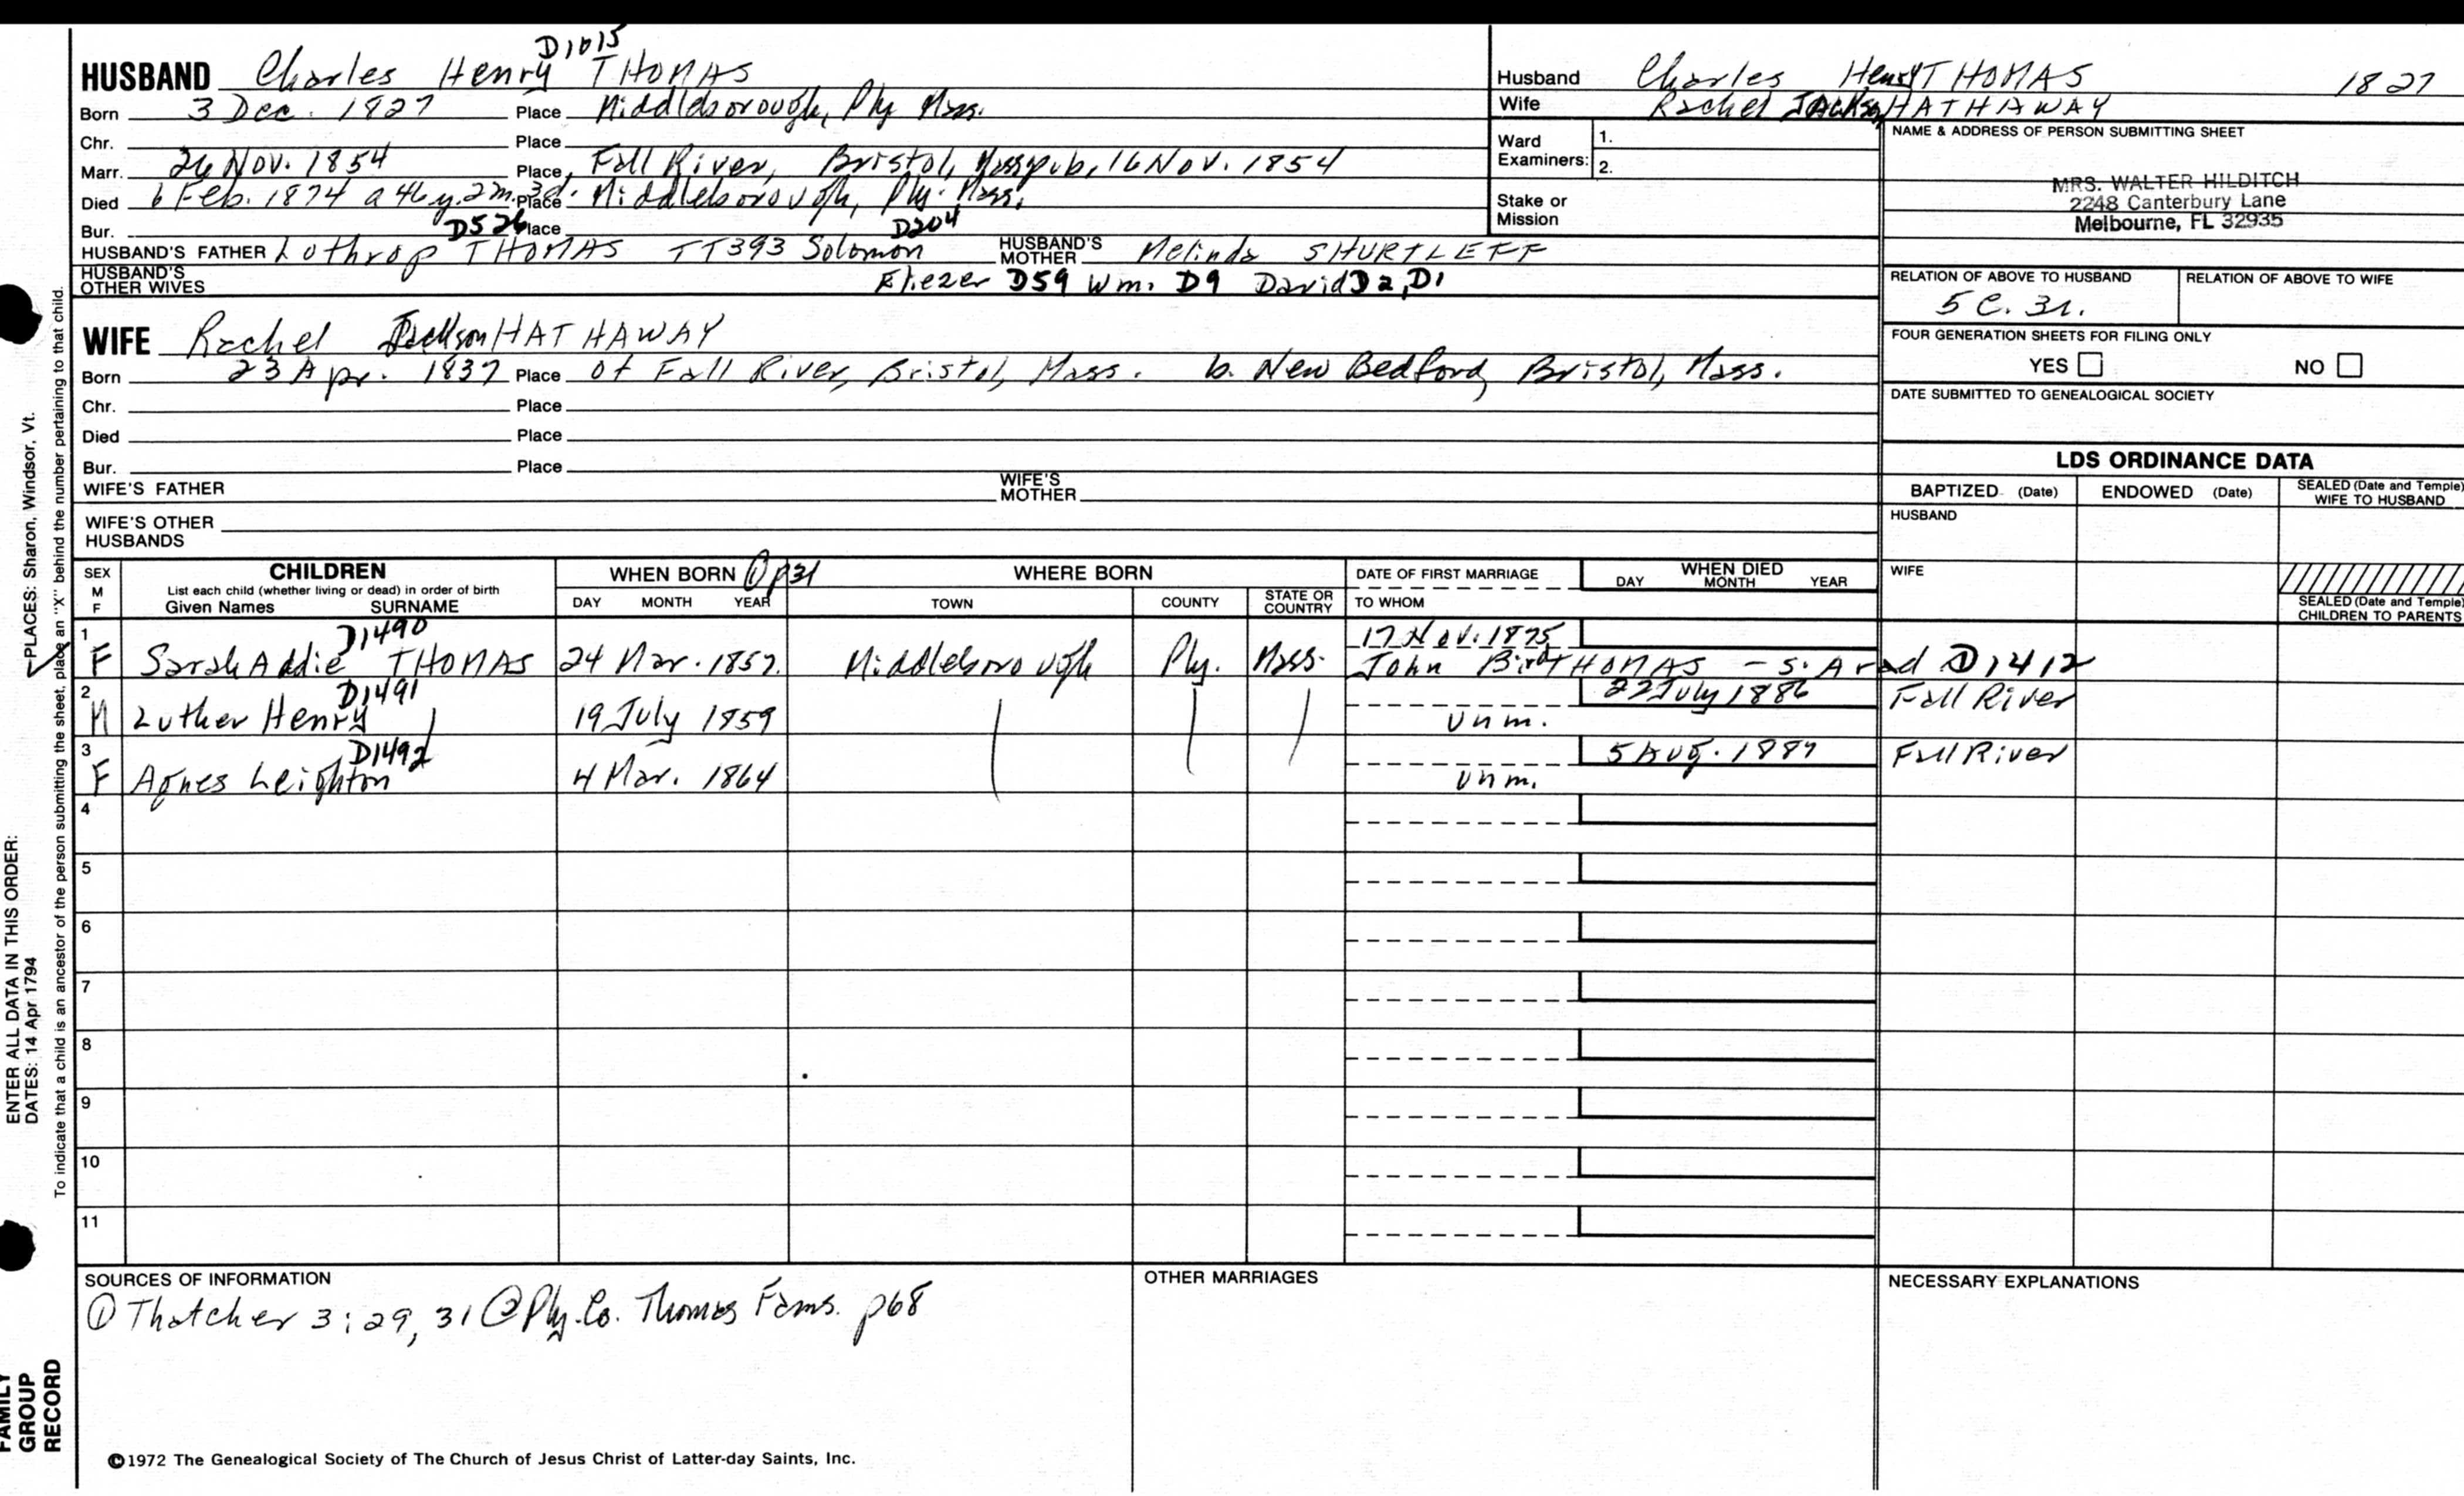 D1015
HUSBAND Charles Henry THOMAS
Born 3 Dec. 1827 Place Middleborough, Ply Mass.
Chr. Place
Marr. 26 Nov. 1854 Place Fall River, Bristol, Mass pub. 16 Nov. 1854
Died 6 Feb. 1874 a 46y. 2m. 3d. Place Middleborough, Ply. Mass.
Bur. D526 Place D204
HUSBAND'S FATHER Lothrop THOMAS TT393 Solomon HUSBAND'S MOTHER Melinda SHURTLEFF
HUSBAND'S OTHER WIVES Eliezer D59 Wm. D9 David D2, D1
WIFE Rachel Jackson HATHAWAY
Born 23 Apr. 1837 Place of Fall River, Bristol, Mass. b. New Bedford, Bristol, Mass.
Chr. Place
Died Place
Bur. Place
WIFE'S FATHER WIFE'S MOTHER
WIFE'S OTHER HUSBANDS
Husband Charles Henry THOMAS 1827
Wife Rachel Jackson HATHAWAY
Ward Examiners: 1.
2.
Stake or Mission
NAME & ADDRESS OF PERSON SUBMITTING SHEET
MRS. WALTER HILDITCH
2248 Canterbury Lane
Melbourne, FL 32935
RELATION OF ABOVE TO HUSBAND RELATION OF ABOVE TO WIFE
5 C. 3r.
FOUR GENERATION SHEETS FOR FILING ONLY
YES NO
DATE SUBMITTED TO GENEALOGICAL SOCIETY
LDS ORDINANCE DATA
BAPTIZED (Date) ENDOWED (Date) SEALED (Date and Temple) WIFE TO HUSBAND
HUSBAND
WIFE
SEALED (Date and Temple) CHILDREN TO PARENTS
SEX M F
CHILDREN
List each child (whether living or dead) in order of birth
Given Names SURNAME
WHEN BORN ① p31
DAY MONTH YEAR
WHERE BORN
TOWN COUNTY STATE OR COUNTRY
DATE OF FIRST MARRIAGE
TO WHOM
WHEN DIED
DAY MONTH YEAR
D1490 17 Nov. 1875
1 F Sarah Addie THOMAS 24 Mar. 1857. Middleborough Ply. Mass. John Bird THOMAS - s. Arad D1412
D1491 22 July 1886 Fall River
2 M Luther Henry 19 July 1859 unm.
D1492 5 Aug. 1887 Fall River
3 F Agnes Leighton 4 Mar. 1864 unm.
4
5
6
7
8
9
10
11
SOURCES OF INFORMATION
① Thatcher 3:29, 31 ② Ply. Co. Thomas Fams. p68
OTHER MARRIAGES
NECESSARY EXPLANATIONS
©1972 The Genealogical Society of The Church of Jesus Christ of Latter-day Saints, Inc.
ENTER ALL DATA IN THIS ORDER:
DATES: 14 Apr 1794 PLACES: Sharon, Windsor, Vt.
To indicate that a child is an ancestor of the person submitting the sheet, place an "X" behind the number pertaining to that child.
FAMILY
GROUP
RECORD